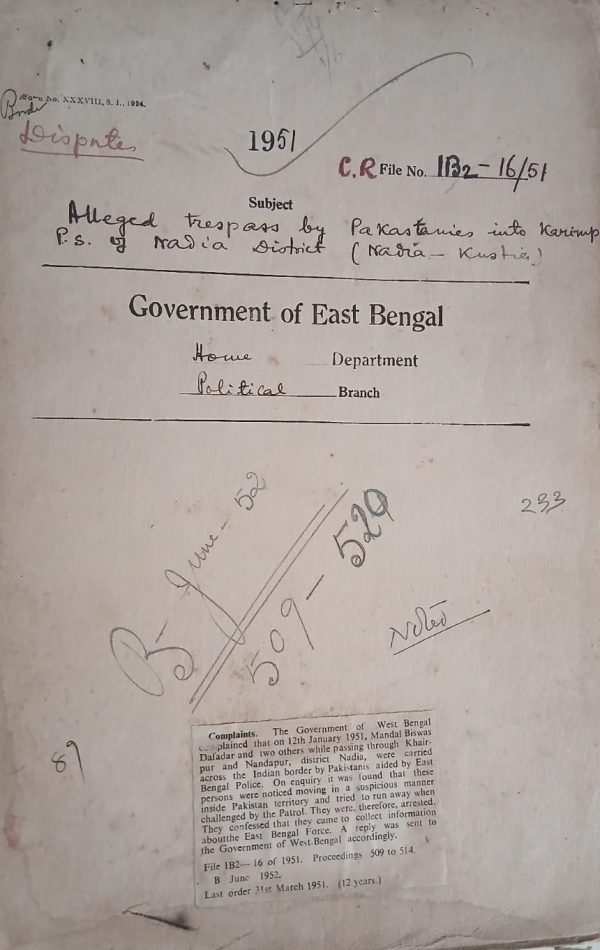 Form No. XXXVIII, S. I., 1924.
Border
Dispute
1951
C.R File No. 1B2-16/51
Subject
Alleged trespass by Pakastanies into Karimp
P.S. of Nadia District (Nadia - Kustia)
Government of East Bengal
Home Department
Political Branch
B- June- 52
509 - 520
233
Noted
89
Complaints. The Government of West Bengal
complained that on 12th January 1951, Mandal Biswas
Dafadar and two others while passing through Khair-
pur and Nandapur, district Nadia, were carried
across the Indian border by Pakistanis aided by East
Bengal Police. On enquiry it was found that these
persons were noticed moving in a suspicious manner
inside Pakistan territory and tried to run away when
challenged by the Patrol. They were, therefore, arrested.
They confessed that they came to collect information
aboutthe East Bengal Force. A reply was sent to
the Government of West Bengal accordingly.
File 1B2— 16 of 1951. Proceedings 509 to 514.
B June 1952.
Last order 31st March 1951. (12 years.)